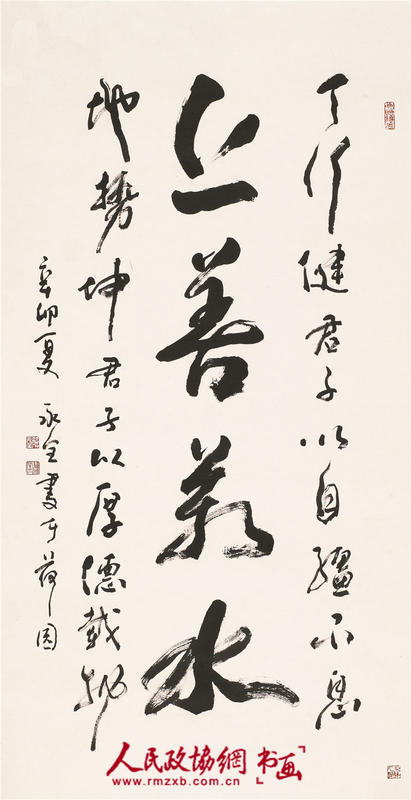 天行健君子以自彊不息
上善若水
地勢坤君子以厚德載物
辛卯夏 永全書于
人民政協網 书画
www.rmzxb.com.cn